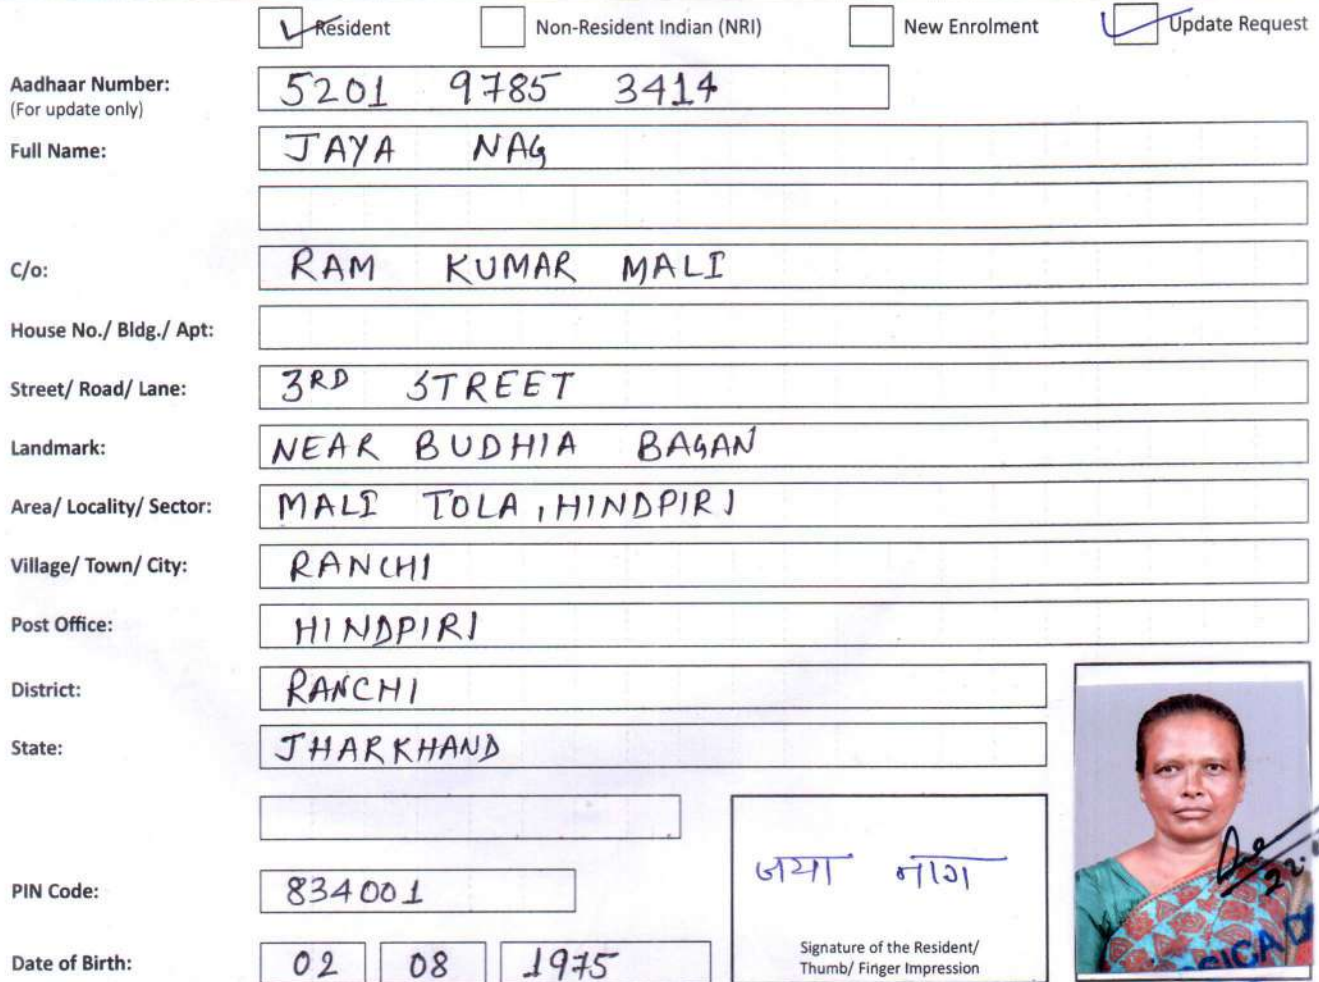 Resident Non-Resident Indian (NRI) New Enrolment Update Request
Aadhaar Number: 5201 9785 3414
(For update only)
Full Name: JAYA NAG
C/o: RAM KUMAR MALI
House No./ Bldg./ Apt:
Street/ Road/ Lane: 3RD STREET
Landmark: NEAR BUDHIA BAGAN
Area/ Locality/ Sector: MALI TOLA, HINDPIRI
Village/ Town/ City: RANCHI
Post Office: HINDPIRI
District: RANCHI
State: JHARKHAND
PIN Code: 834001
जया नाग
Signature of the Resident/
Thumb/ Finger Impression
Date of Birth: 02 08 1975